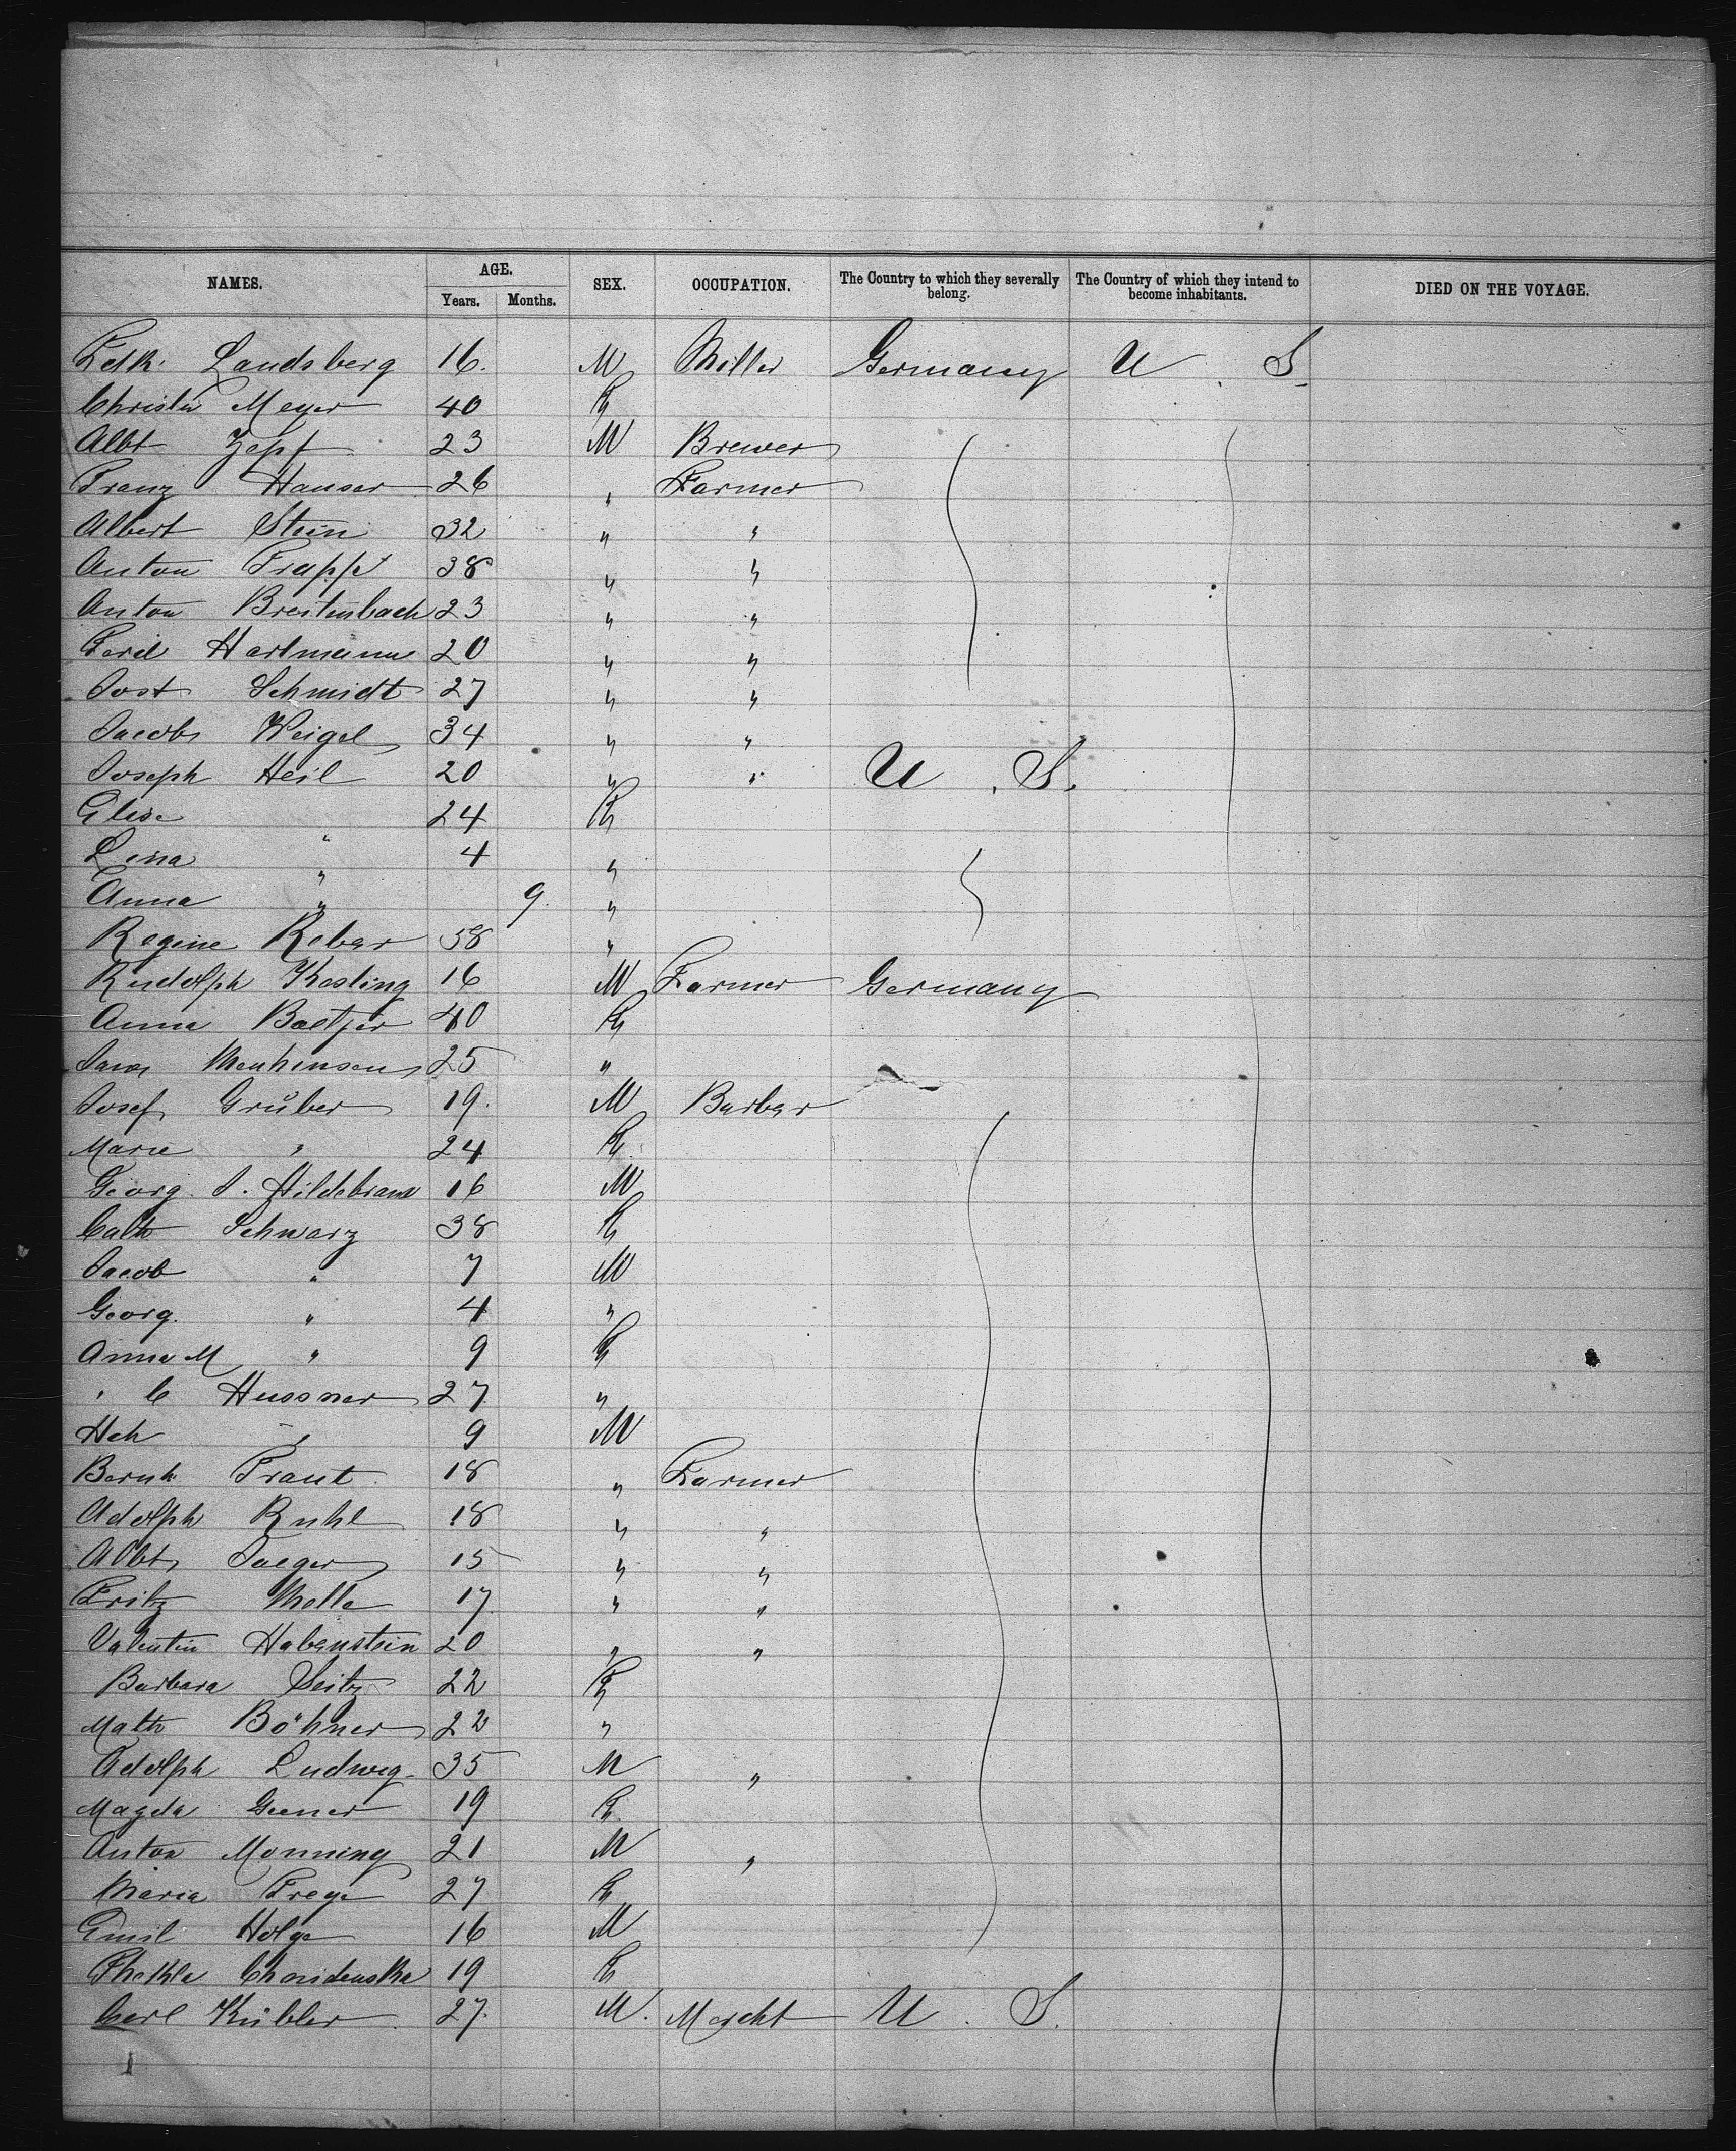 NAMES. AGE. SEX. OCCUPATION. The Country to which they severally belong. The Country of which they intend to become inhabitants. DIED ON THE VOYAGE.
Years. Months.
Landsberg 16. M Miller Germany U. S.
Meyer 40
Albt Zopf 23 M Brewer
Franz Hauser 26 " Farmer
Albert Stein 32 " "
Anton Trappe 38 " "
Anton Breitenbach 23 " "
Ferd Hartmann 20 " "
Jost Schmidt 27 " "
Jacob Weigel 34 " "
Joseph Heil 20 " " U. S.
Elise " 24
Lina " 4 "
Anna " 9. "
Regine Reber 58 "
Rudolph Kesling 16 M Farmer Germany
Anna Baetjer 40
25 "
Josef Grüber 19. M Barber
Marie " 24
Georg J. Hildebrand 16 M
Cath Schwarz 38
Jacob " 7 M
Georg. " 4 "
Anna M " 9
" C Hussner 27 "
Hch " 9 M
Bernh Traut 18 " Farmer
Adolph Ruhl 18 " "
Albt Jaeger 15 " "
Fritz Molle 17 " "
Valentin Habenstein 20 " "
Barbara Seitz 22
Math Böhner 22 "
Adolph Ludwig 35 M "
Magda 19
Anton Monning 21 M "
Maria Freye 27
Emil Holge 16 M
Thekla 19
Carl Kübler 27. M. Mercht U. S.